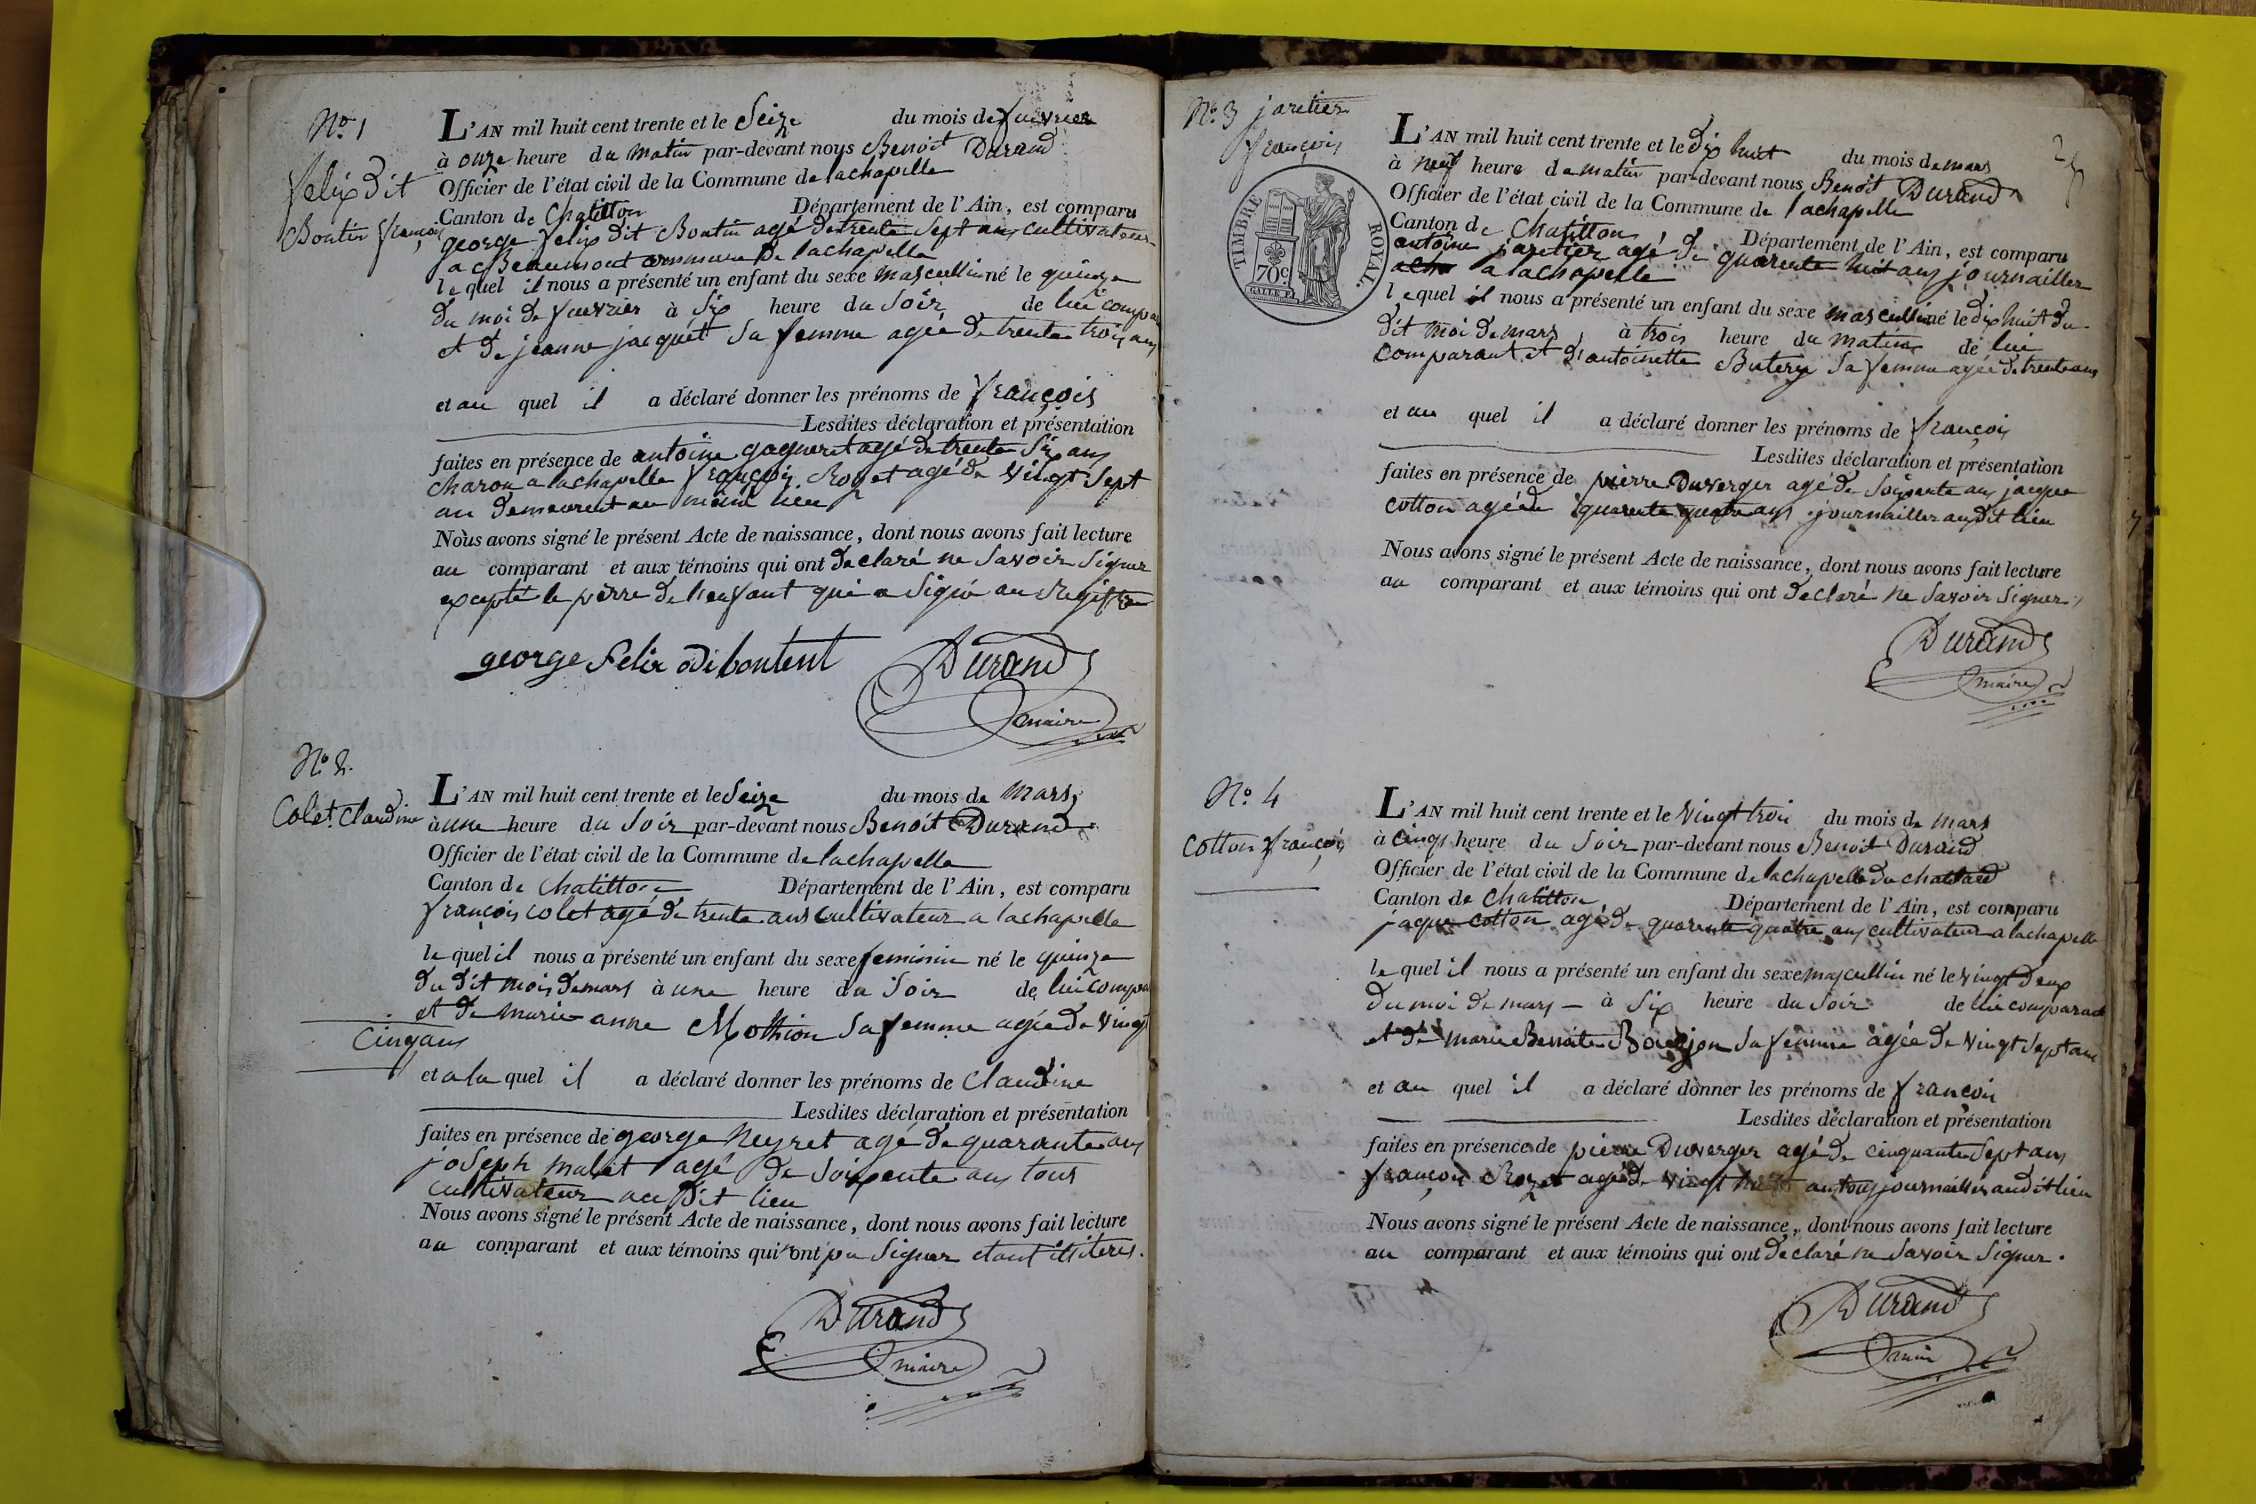 No. 1
felix dit
Boutin françois
L'AN mil huit cent trente et le Seize du mois de fuevrier
à onze heure du matin par-devant nous Benoit Durand
Officier de l'état civil de la Commune de lachapelle
Canton de Chatillon Département de l'Ain, est comparu
george felix dit Boutin agé de trente Sept ans cultivateur
a Beaumont commune De lachapelle
lequel il nous a présenté un enfant du sexe mascullin né le quinze
du moi de fuevrier à Six heure du Soir de lui compar
et de jeanne jacquet Sa femme agée de trente trois ans
et au quel il a déclaré donner les prénoms de françois
Lesdites déclaration et présentation
faites en présence de antoine gagneret agé de trente Six ans
charon a lachapelle françois Royet agé de Vingt Sept
an demeurent au même lieu
Nous avons signé le présent Acte de naissance, dont nous avons fait lecture
au comparant et aux témoins qui ont declaré ne Savoir Signer
excepté le perre de lenfant qui a Signé au Registre
george felix di boutent
Durand
maire
No. 2.
Colet Claudine
L'AN mil huit cent trente et le Seize du mois de mars
à une heure du Soir par-devant nous Benoit Durand
Officier de l'état civil de la Commune de lachapelle
Canton de Chatillon Département de l'Ain, est comparu
françois colet agé de trente ans cultivateur a lachapelle
lequel il nous a présenté un enfant du sexe feminin né le quinze
du dit mois de mars à une heure du Soir de lui compar
et de marie anne Mothion Sa femme agée de Vingt
Cinq ans
et a la quel il a déclaré donner les prénoms de Claudine
Lesdites déclaration et présentation
faites en présence de george Neyret agé de quarante ans
joseph mulet agé de Soixente ans tous
cultivateur au dit lieu
Nous avons signé le présent Acte de naissance, dont nous avons fait lecture
au comparant et aux témoins qui n'ont pu Signer etant illiteres.
Durand
maire
No. 3 jaretier
françois
TIMBRE ROYAL.
70c.
L'AN mil huit cent trente et le dix huit du mois de mars
à neuf heure de matin par-devant nous Benoit Durand
Officier de l'état civil de la Commune de lachapelle
Canton de Chatillon Département de l'Ain, est comparu
antoine jaretier agé de quarente huit ans journaillier
a lachapelle
lequel il nous a présenté un enfant du sexe mascullin né le dix huit du
dit moi de mars à trois heure du matin de lui
comparant et d'antoinette Butery Sa femme agée de trente ans
et au quel il a déclaré donner les prénoms de françois
Lesdites déclaration et présentation
faites en présence de pierre Duverger agé de Soixente ans jacque
cotton agé de quarente quatre ans journaillier audit lieu
Nous avons signé le présent Acte de naissance, dont nous avons fait lecture
au comparant et aux témoins qui ont declaré ne Savoir Signer
Durand
maire
No. 4
Cotton françois
L'AN mil huit cent trente et le Vingt trois du mois de mars
à Cinq heure du Soir par-devant nous Benoit Durand
Officier de l'état civil de la Commune de lachapelle du chatelard
Canton de Chatillon Département de l'Ain, est comparu
jaque cotton agé de quarente quatre ans cultivateur a lachapelle
lequel il nous a présenté un enfant du sexe mascullin né le Vingt Deux
Du moi de mars à Six heure du Soir de lui comparant
et de marie Benoite Bourjon Sa femme agée de Vingt Sept ans
et au quel il a déclaré donner les prénoms de françois
Lesdites déclaration et présentation
faites en présence de pierre Duverger agé de cinquante Sept ans
françois Royet agé de vingt ans tous journaillier audit lieu
Nous avons signé le présent Acte de naissance, dont nous avons fait lecture
au comparant et aux témoins qui ont déclaré ne Savoir Signer.
Durand
maire